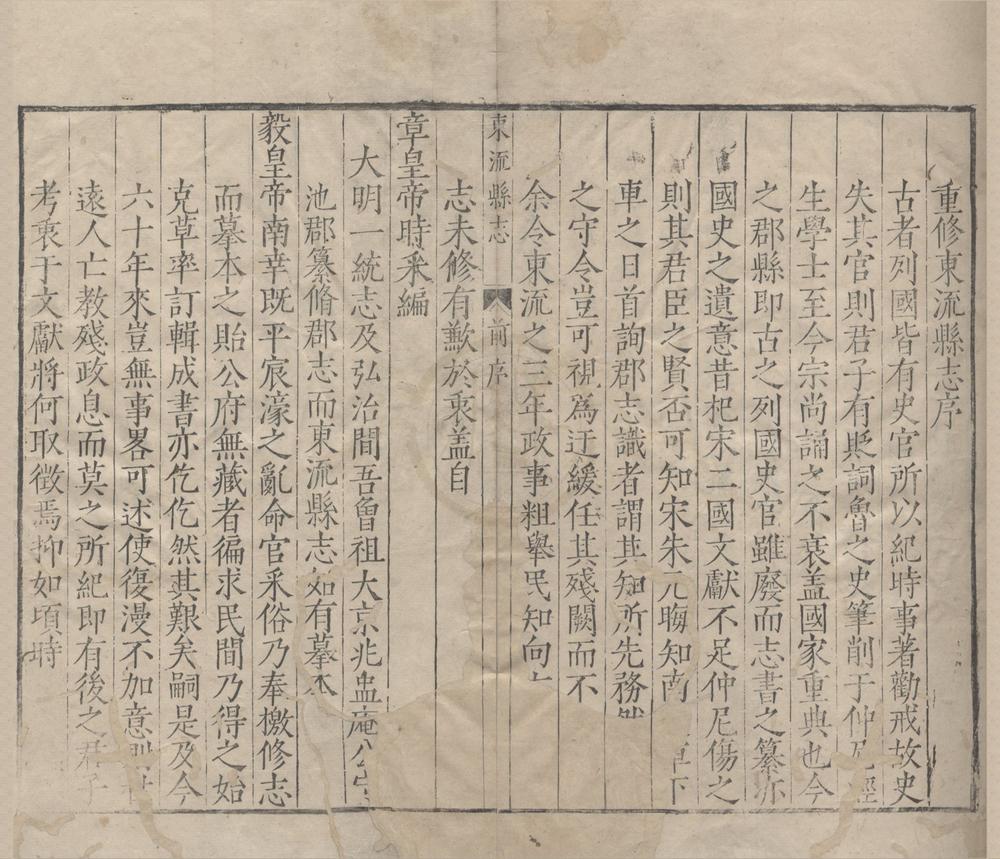 重修東流縣志序
古者列國皆有史官所以紀時事著勸戒故史
失其官則君子有貶詞魯之史筆削于仲尼經
生學士至今宗尚誦之不衰盖國家重典也今
之郡縣即古之列國史官雖廢而志書之纂亦
國史之遺意昔杞宋二國文獻不足仲尼傷之
則其君臣之賢否可知宋朱元晦知南下
車之日首詢郡志識者謂其知所先務
之守令豈可視爲迂緩任其殘闕而不
余令東流之三年政事粗舉民知向
東流縣志 前序
志未修有歉於衷盖自
章皇帝時采編
大明一統志及弘治間吾曾祖大京兆盅庵公
池郡纂脩郡志而東流縣志如有摹本
毅皇帝南幸既平宸濠之亂命官采俗乃奉檄修志
而摹本之貽公府無藏者徧求民間乃得之始
克草率訂輯成書亦仡仡然其艱矣嗣是及今
六十年來豈無事畧可述使復漫不加意
遠人亡教殘政息而莫之所紀即有後之君子
考衷于文獻將何取徵焉抑如頃時